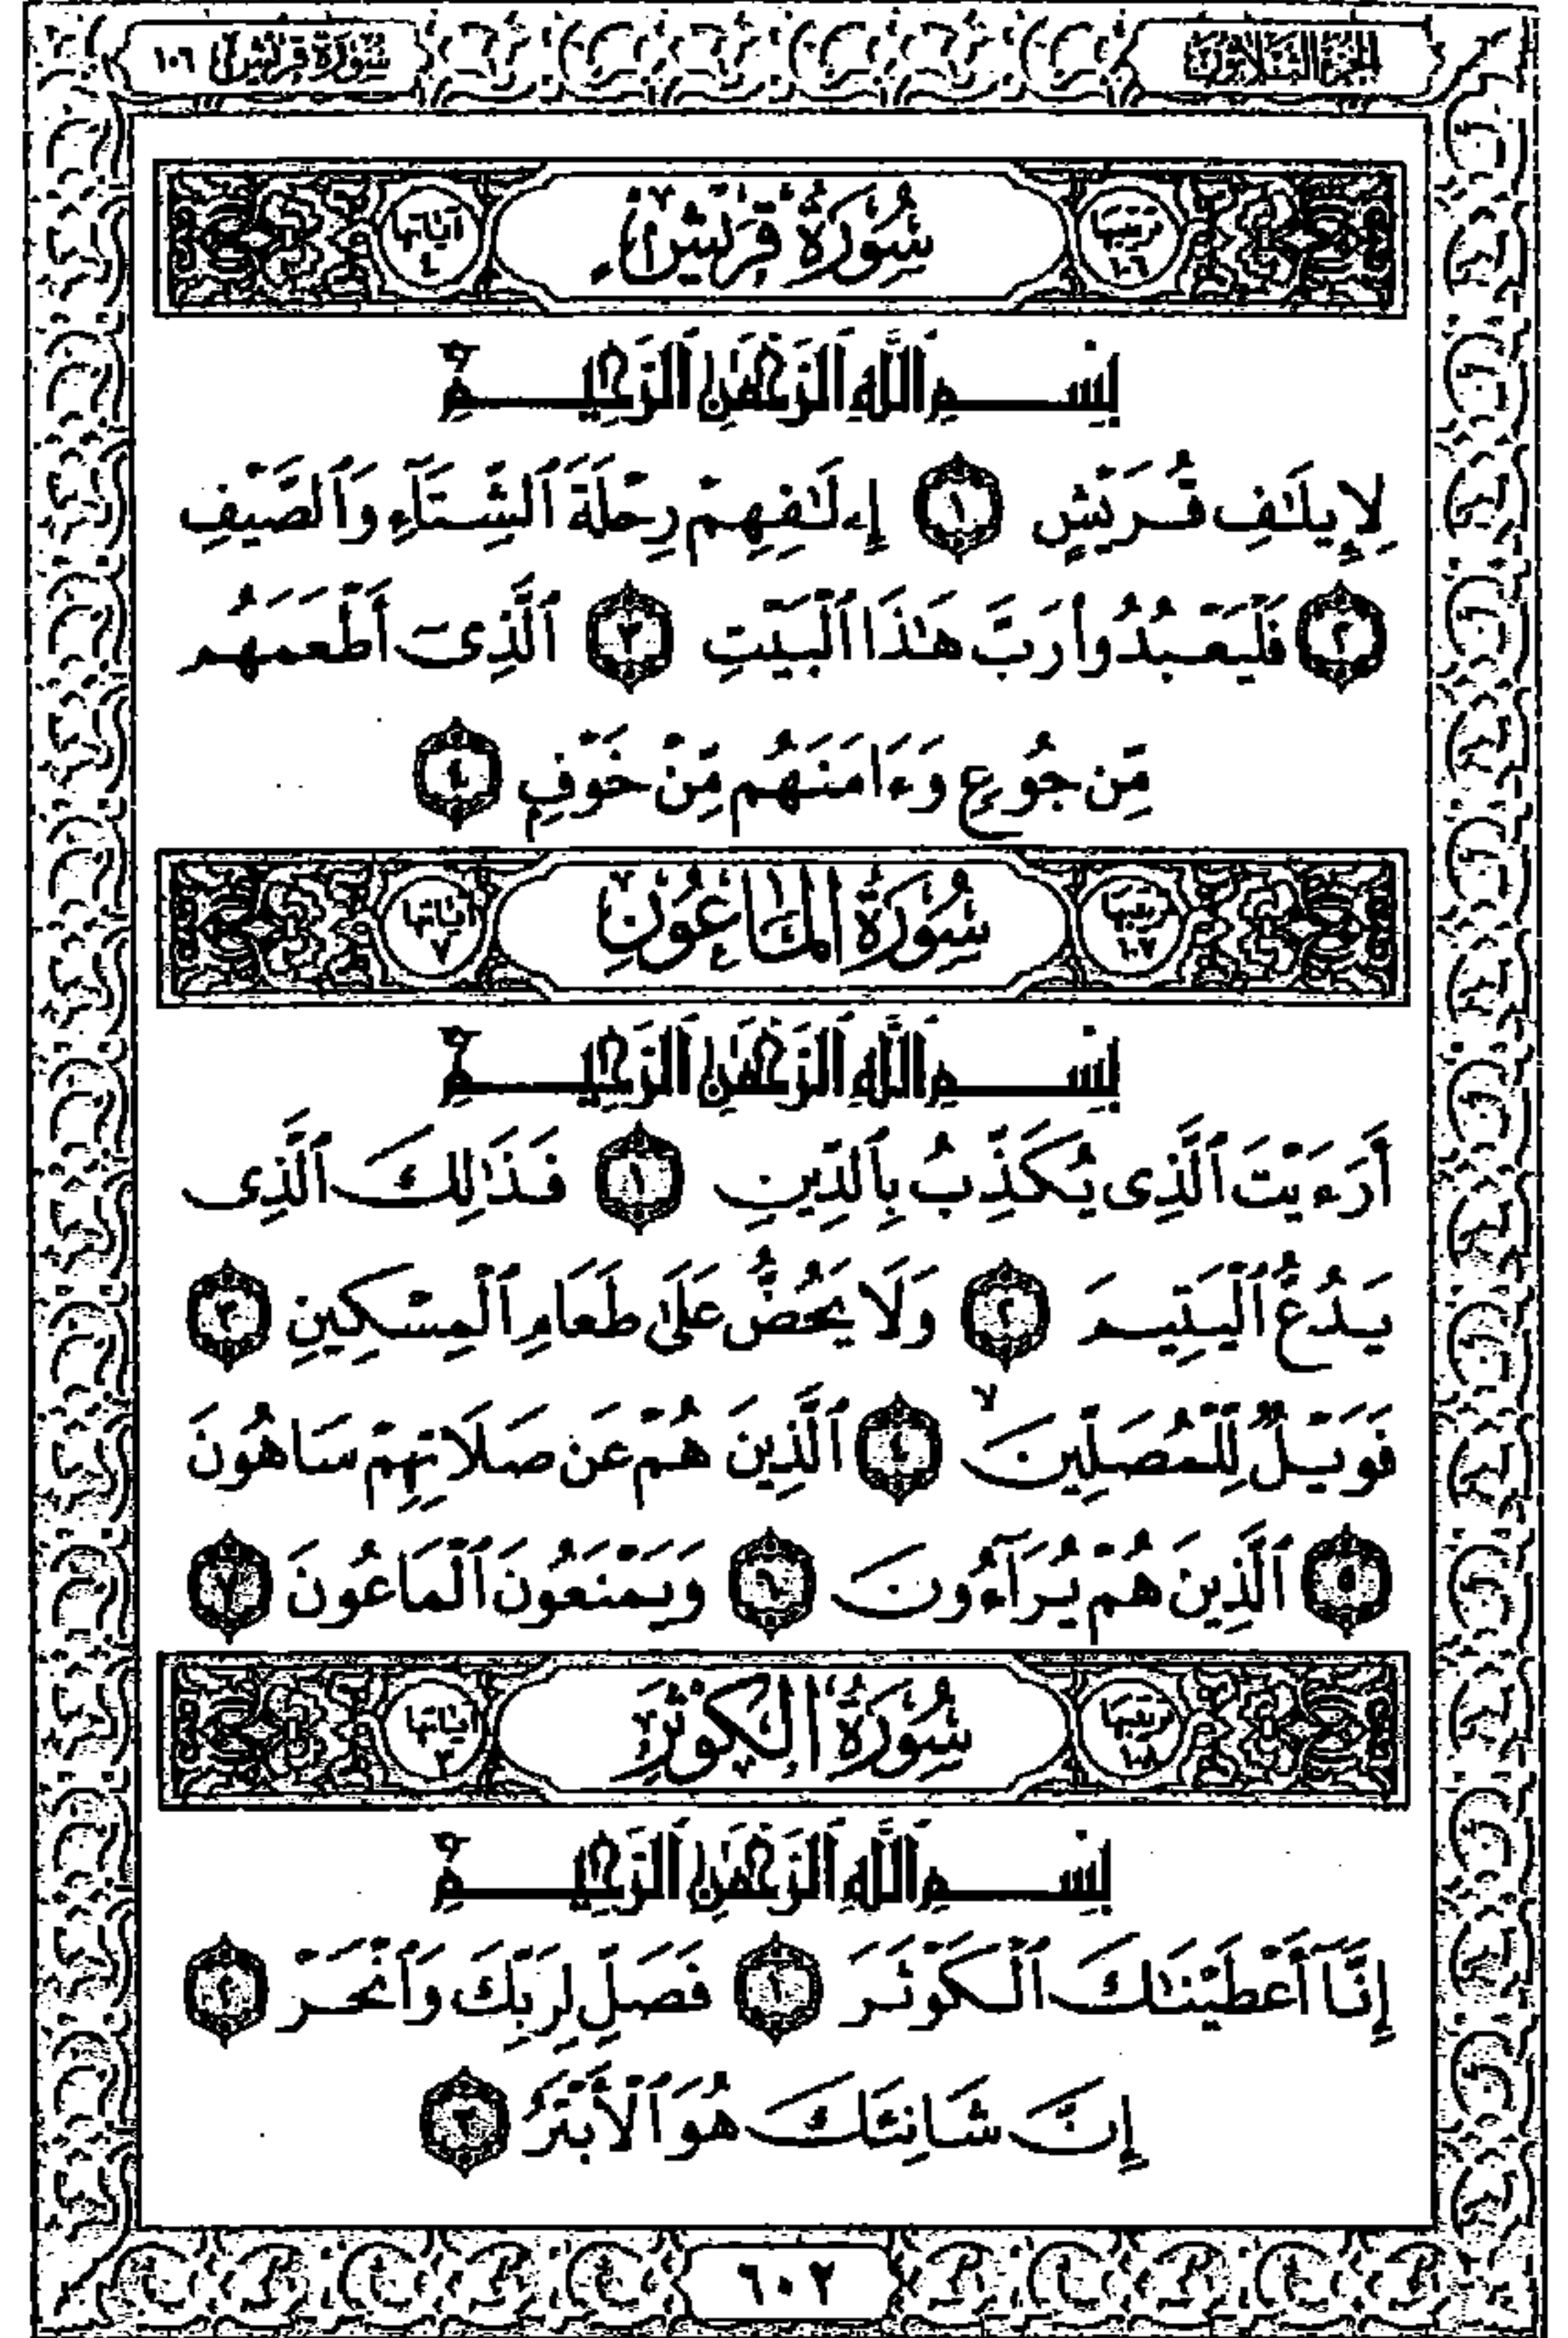 الجزء الثلاثون
سورة قريش ١٠٦
ترتيبها ١٠٦ سُورَةُ قُرَيْشٍ آياتها ٤
بِسْمِ ٱللَّهِ ٱلرَّحْمَٰنِ ٱلرَّحِيمِ
لِإِيلَٰفِ قُرَيْشٍ ١ إِۦلَٰفِهِمْ رِحْلَةَ ٱلشِّتَآءِ وَٱلصَّيْفِ
٢ فَلْيَعْبُدُوا۟ رَبَّ هَٰذَا ٱلْبَيْتِ ٣ ٱلَّذِىٓ أَطْعَمَهُم
مِّن جُوعٍ وَءَامَنَهُم مِّنْ خَوْفٍۭ ٤
ترتيبها ١٠٧ سُورَةُ المَاعُونِ آياتها ٧
بِسْمِ ٱللَّهِ ٱلرَّحْمَٰنِ ٱلرَّحِيمِ
أَرَءَيْتَ ٱلَّذِى يُكَذِّبُ بِٱلدِّينِ ١ فَذَٰلِكَ ٱلَّذِى
يَدُعُّ ٱلْيَتِيمَ ٢ وَلَا يَحُضُّ عَلَىٰ طَعَامِ ٱلْمِسْكِينِ ٣
فَوَيْلٌ لِّلْمُصَلِّينَ ۙ ٤ ٱلَّذِينَ هُمْ عَن صَلَاتِهِمْ سَاهُونَ
٥ ٱلَّذِينَ هُمْ يُرَآءُونَ ٦ وَيَمْنَعُونَ ٱلْمَاعُونَ ٧
ترتيبها ١٠٨ سُورَةُ الكَوْثَرِ آياتها ٣
بِسْمِ ٱللَّهِ ٱلرَّحْمَٰنِ ٱلرَّحِيمِ
إِنَّآ أَعْطَيْنَٰكَ ٱلْكَوْثَرَ ١ فَصَلِّ لِرَبِّكَ وَٱنْحَرْ ٢
إِنَّ شَانِئَكَ هُوَ ٱلْأَبْتَرُ ٣
٦٠٢